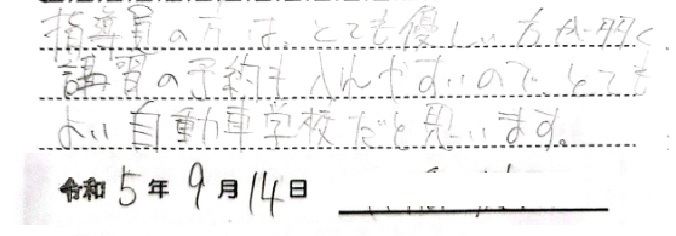 指導員の方は、とても優しい方が多く
講習の予約も入れやすいので、とても
よい自動車学校だと思います。
令和5年9月14日